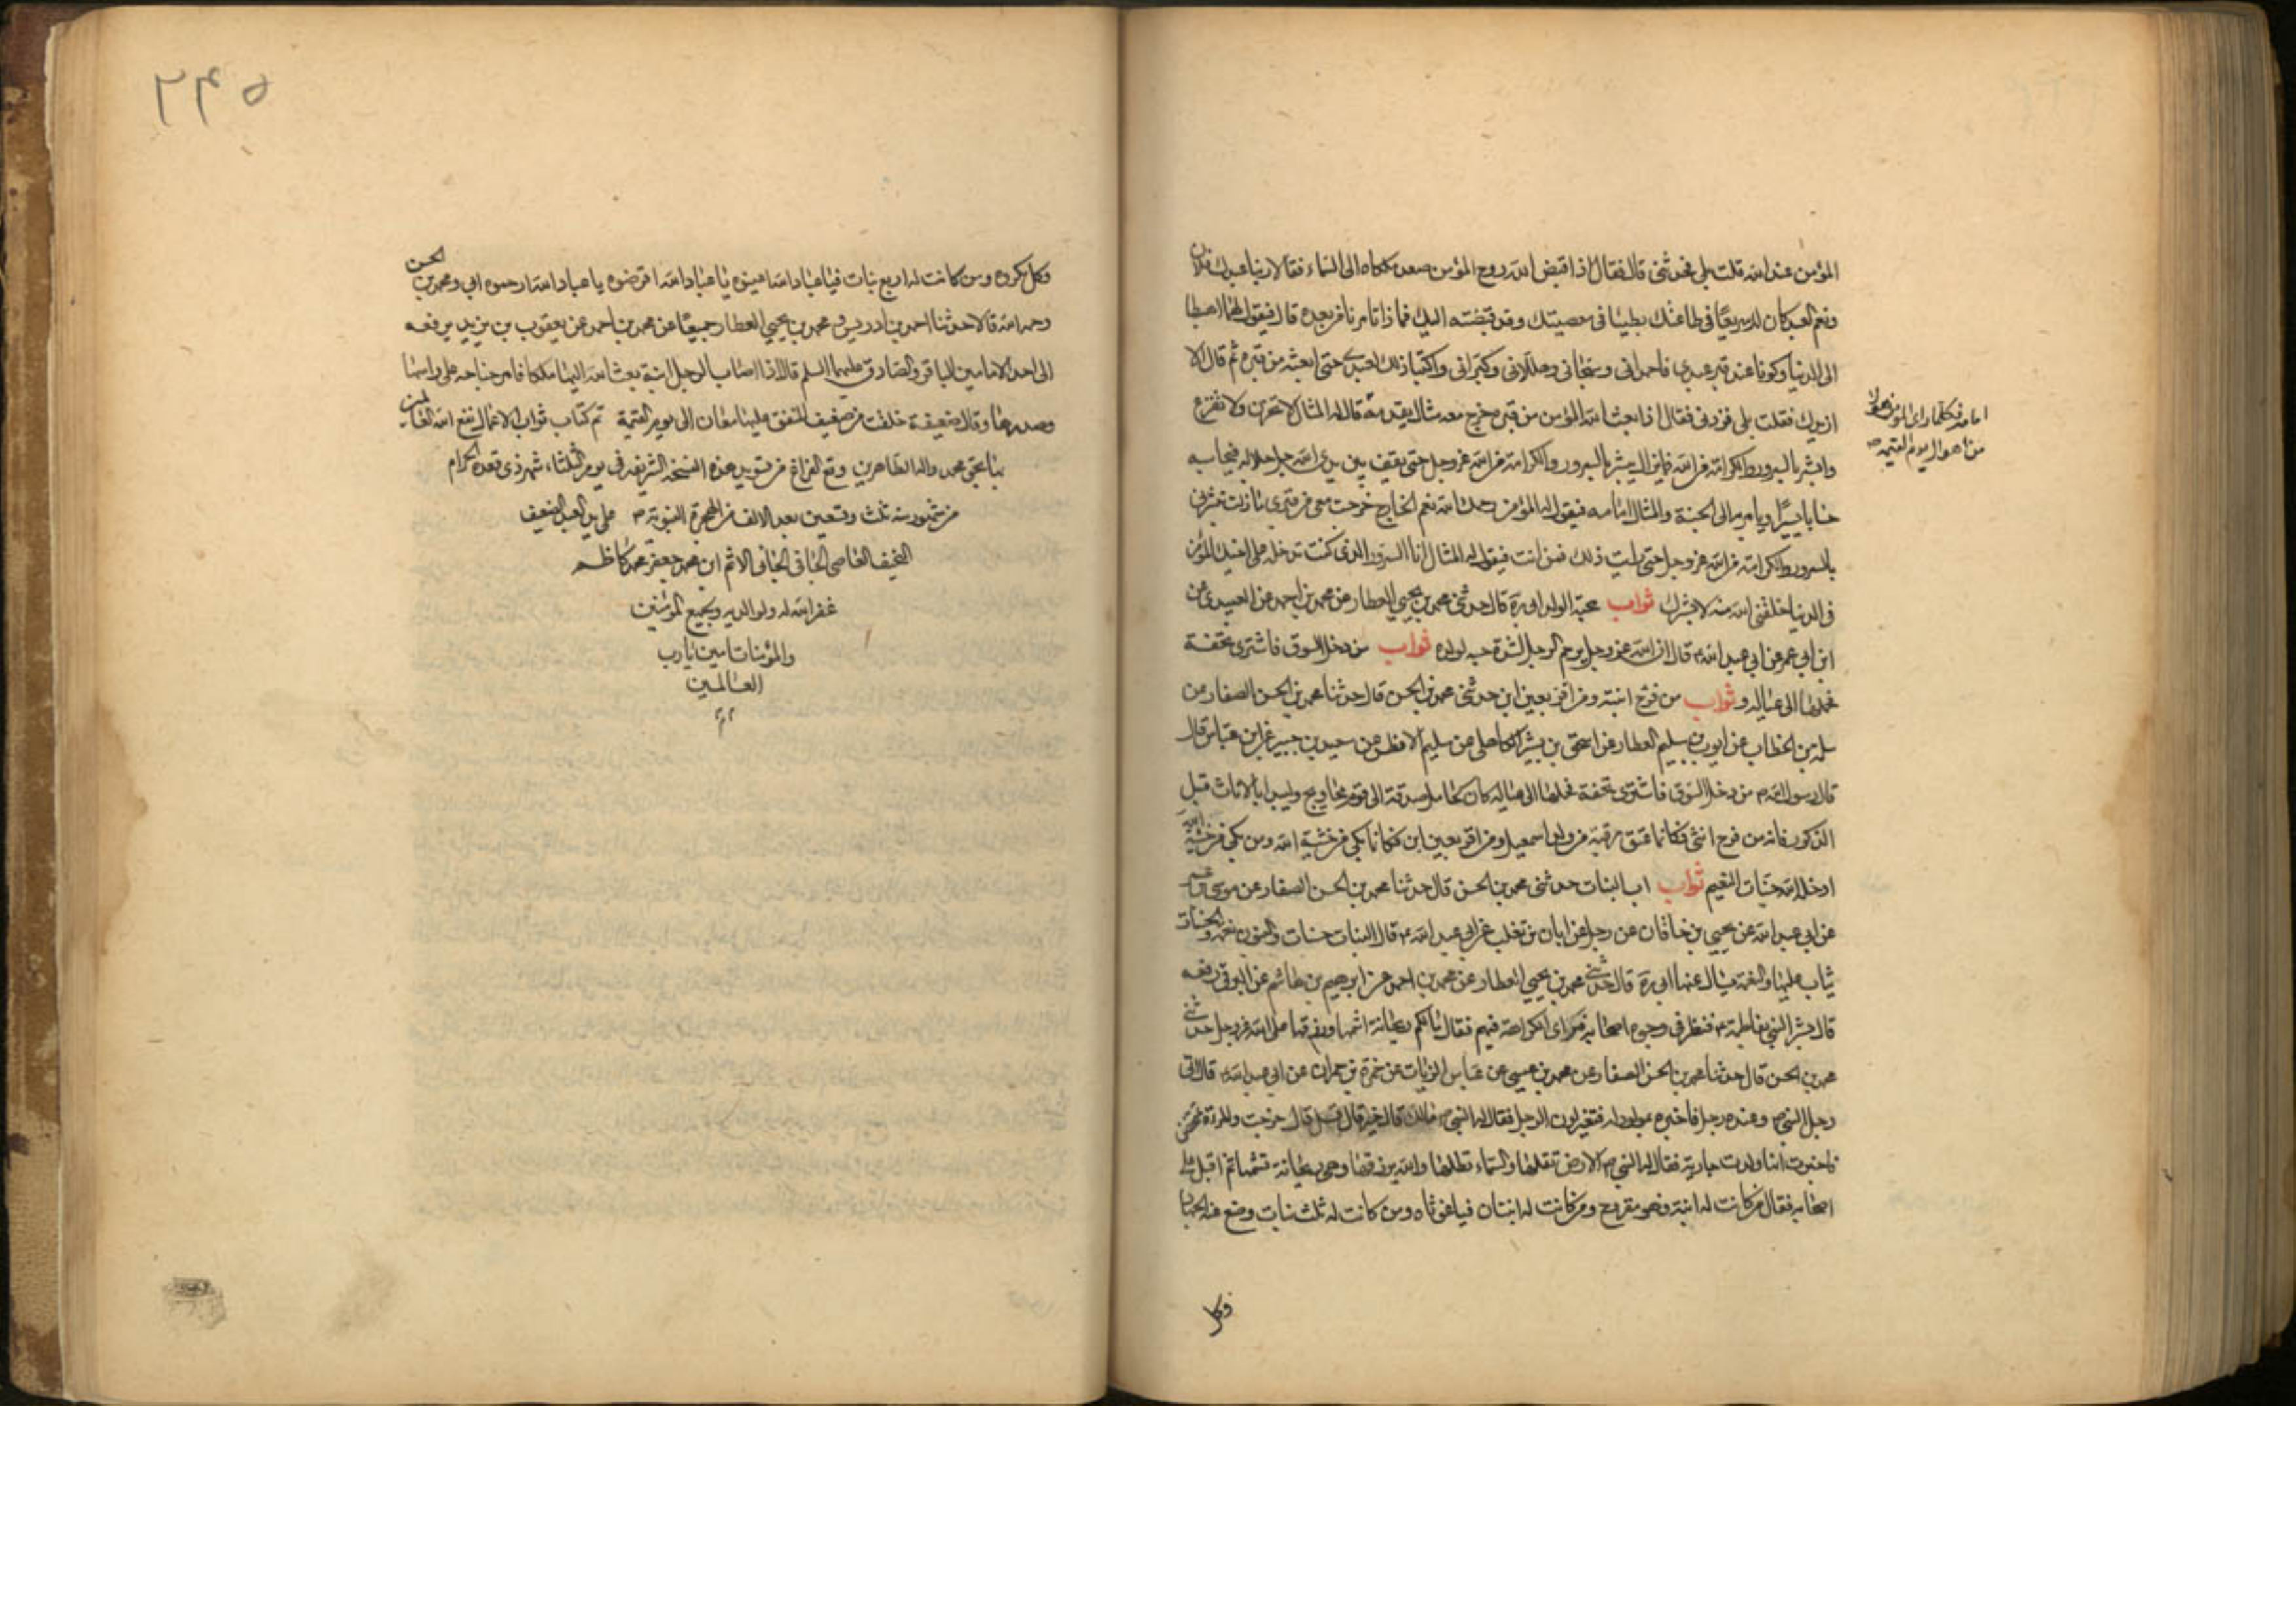 المؤمن عند الله قلت بلى فحدثنى قال فقال اذا قبض الله روح المؤمن صعد ملكاه الى السماء فقالا ربنا عبدك فلان
ونعم العبد كان لك سريعًا فى طاعتك بطيئا فى معصيتك وقد قبضته اليك فماذا تامرنا من بعده قال فيقول لهما اهبطا
الى الدنيا وكونا عند قبر عبدى فاحمدانى وسبحانى وهللانى وكبرانى واكتبا ذلك لعبدى حتى ابعثه من قبره ثم قال الا
ازيدك فقلت بلى فزدنى فقال اذا بعث الله المؤمن من قبره خرج معه مثال يقدمه قال له المثال لا تحزن ولا تفزع
امامه فكلما راى المؤمن هولا
من اهوال يوم القيمة
وابشر بالسرور والكرامة من الله فما يزال يبشره بالسرور والكرامة من الله عز وجل حتى يقف بين يدى الله جل جلاله فيحاسبه
حسابا يسيرًا ويامر به الى الجنة والمثال امامه فيقول له المؤمن رحمك الله نعم الخارج خرجت معى من قبرى ما زلت تبشرنى
بالسرور والكرامة من الله عز وجل حتى رايت ذلك فمن انت فيقول له المثال انا السرور الذى كنت تدخله على اخيك المؤمن
فى الدنيا خلقنى الله منه لابشرك ثواب محبة الولد ابى ره قال حدثنى محمد بن يحيى العطار عن محمد بن احمد عن العبيدى عن
ابن ابى عمير عن ابى عبد الله ع قال ان الله عز وجل يرحم الرجل لشدة حبه لولده ثواب من دخل السوق فاشترى تحفة
فحملها الى عياله وثواب من فرح ابنته ومن اقر بعين ابن حدثنى محمد بن الحسن قال حدثنا محمد بن الحسن الصفار عن
سلمة بن الخطاب عن ايوب بن سليم العطار عن اسحق بن بشر الكاهلى عن سليم الافطس عن سعيد بن جبير عن ابن عباس قال
قال رسول الله ص من دخل السوق فاشترى تحفة فحملها الى عياله كان كحامل صدقة الى قوم محاويج وليبدا بالاناث قبل
الذكور فانه من فرح انثى فكانما عتق رقبة من ولد اسمعيل ومن اقر بعين ابن فكانما بكى من خشية الله ومن بكى من خشية الله
ادخله الله جنات النعيم ثواب اب البنات حدثنى محمد بن الحسن قال حدثنا محمد بن الحسن الصفار عن موسى بن عمر
عن ابى عبد الله عن يحيى بن خاقان عن رجل عن ابان بن تغلب عن ابى عبد الله ع قال البنات حسنات والبنون نعمة والحسنات
يثاب عليها والنعمة يسال عنها ابى ره قال حدثنى محمد بن يحيى العطار عن محمد بن احمد عن ابرهيم بن هاشم عن البرقى رفعه
قال بشر النبى بفاطمة ع فنظر فى وجوه اصحابه فراى الكراهة فيهم فقال ما لكم ريحانة اشمها ورزقها على الله عز وجل حدثنى
محمد بن الحسن قال حدثنا محمد بن الحسن الصفار عن محمد بن عيسى عن عباس الزيات عن حمزة بن حمران عن ابى عبد الله ع قال اتى
رجل النبى ص وعنده رجل فاخبره بمولود له فتغير لون الرجل فقال له النبى ص مالك قال خير قال قل قال خرجت والمراة تمخض
فاخبرت انها ولدت جارية فقال له النبى ص الارض تقلها والسماء تظلها والله يرزقها وهى ريحانة تشمها ثم اقبل على
اصحابه فقال من كانت له ابنة فهو مقروح ومن كانت له ابنتان فيا غوثاه ومن كانت له ثلث بنات وضع عنه الجهاد
وكل
٢٣٥
وكل مكروه ومن كانت له اربع بنات فيا عباد الله اعينوه يا عباد الله اقرضوه يا عباد الله ارحموه ابى ومحمد بن الحسن
رحمه الله قالا حدثنا احمد بن ادريس ومحمد بن يحيى العطار جميعًا عن محمد بن احمد عن يعقوب بن يزيد يرفعه
الى احد الامامين الباقر والصادق عليهما السلم قال اذا اصاب الرجل ابنة بعث الله اليها ملكا فامر جناحه على راسها
وصدرها وقال ضعيفة خلقت من ضعيف المنفق عليها معان الى يوم القيمة تم كتاب ثواب الاعمال نفع الله العاملين
بنا بحق محمد واله الطاهرين وقع الفراغ من تسويد هذه النسخة الشريفة فى يوم الثلثاء شهر ذى قعدة الحرام
من شهور سنه ثلث وتسعين بعد الالف من الهجرة النبوية ص على يد العبد الضعيف
النحيف العاصى الجافى الجانى الاثم ابن محمد جعفر محمد كاظم
غفر الله له ولوالديه ولجميع المؤمنين
والمؤمنات امين يا رب
العالمين